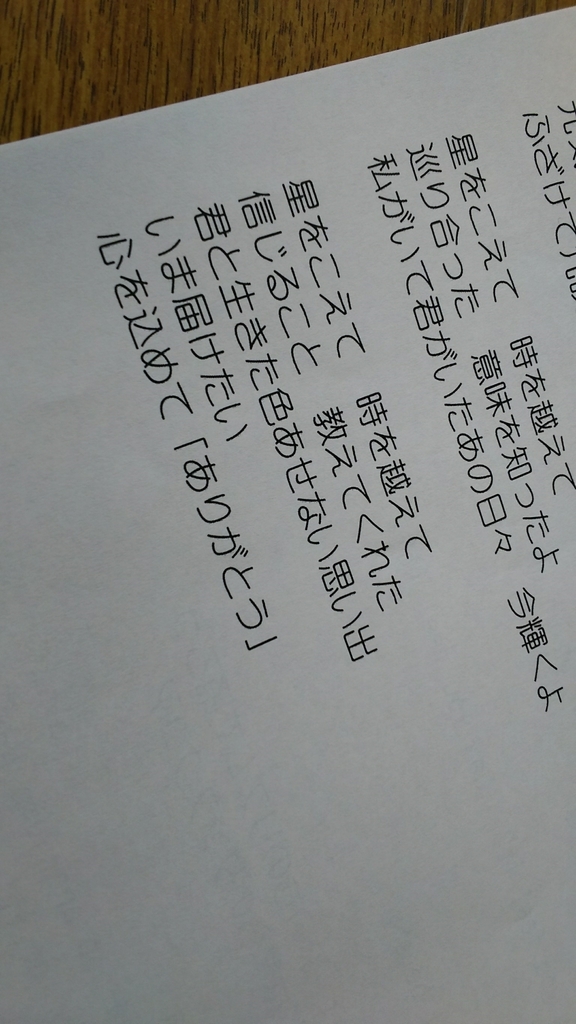 ふざけて
星をこえて　時を越えて
巡り合った　意味を知ったよ
私がいて君がいたあの日々　今輝くよ
星をこえて　時を越えて
信じること　教えてくれた
君と生きた色あせない思い出
いま届けたい
心を込めて「ありがとう」